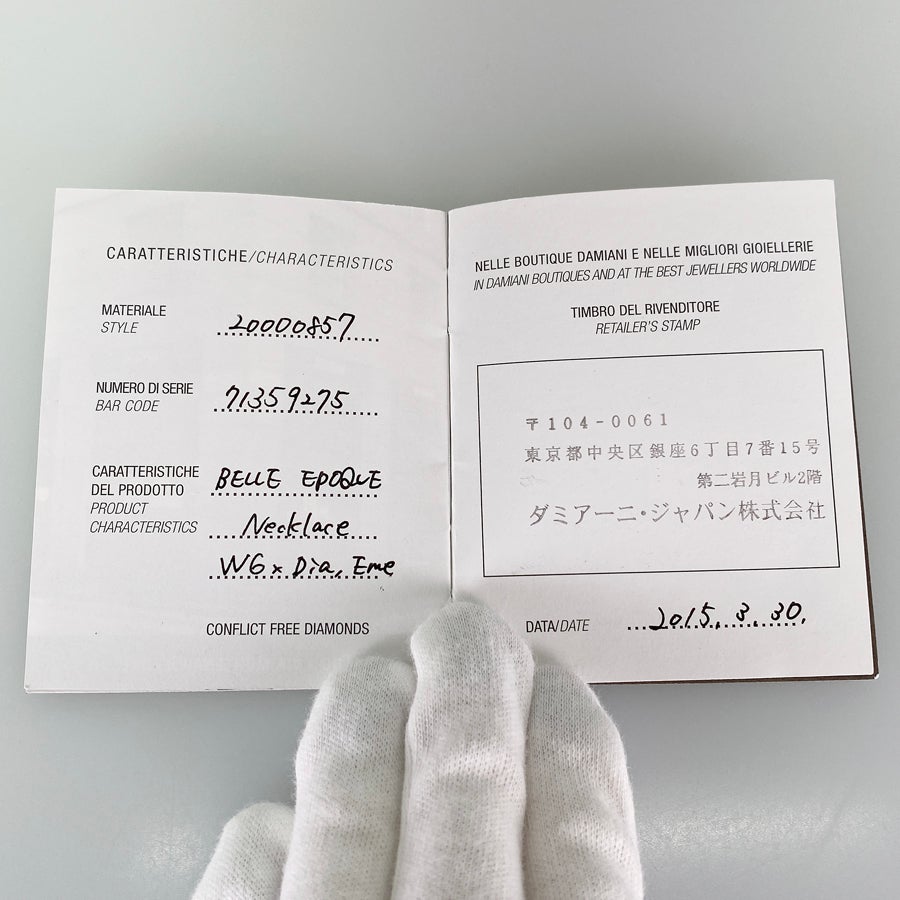 CARATTERISTICHE/CHARACTERISTICS
MATERIALE
STYLE
20000857
NUMERO DI SERIE
BAR CODE
71359275
CARATTERISTICHE
DEL PRODOTTO
PRODUCT
CHARACTERISTICS
BELLE EPOQUE
Necklace
WG x Dia, Eme
CONFLICT FREE DIAMONDS
NELLE BOUTIQUE DAMIANI E NELLE MIGLIORI GIOIELLERIE
IN DAMIANI BOUTIQUES AND AT THE BEST JEWELLERS WORLDWIDE
TIMBRO DEL RIVENDITORE
RETAILER'S STAMP
〒104-0061
東京都中央区銀座6丁目7番15号
第二岩月ビル2階
ダミアーニ・ジャパン株式会社
DATA/DATE
2015.3.30.